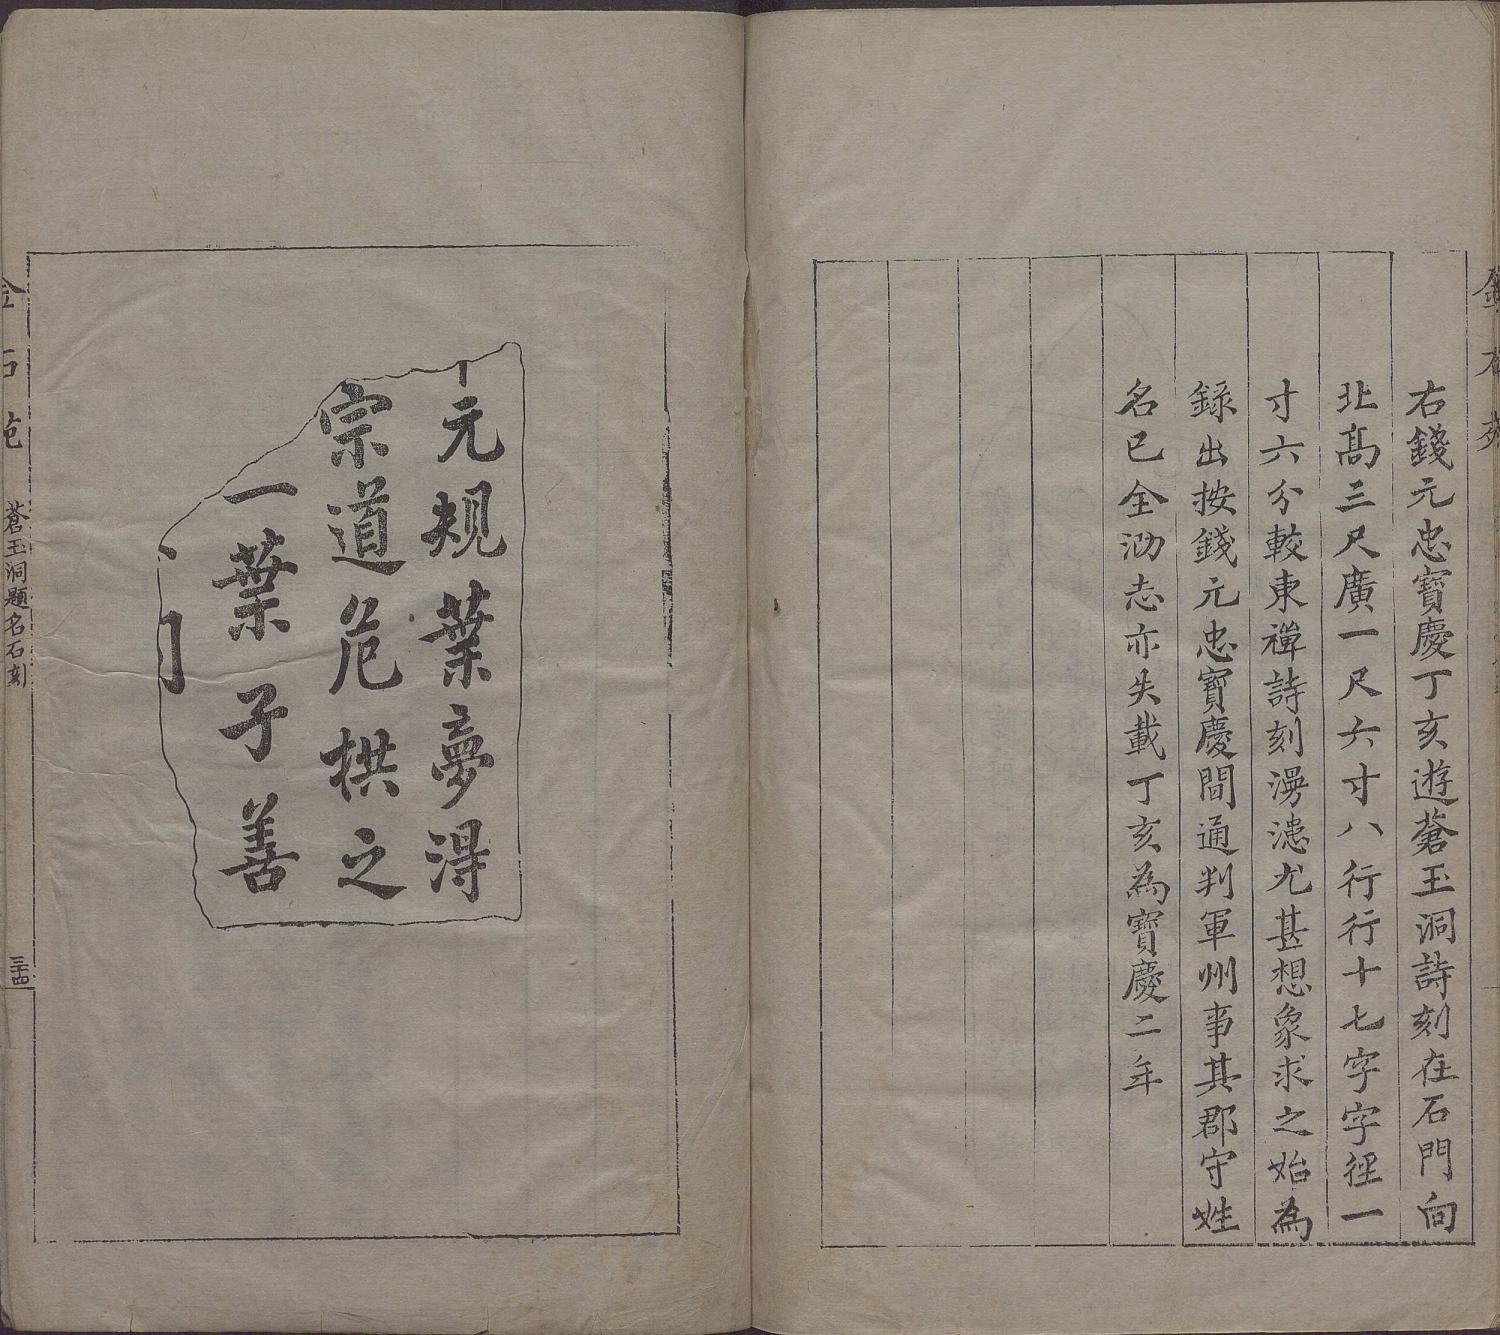 金石苑
右錢元忠寶慶丁亥遊蒼玉洞詩刻在石門向
北髙三尺廣一尺六寸八行行十七字字徑一
寸六分較東禪詩刻漫漶尤甚想象求之始為
録出按錢元忠寶慶間通判軍州事其郡守姓
名已全泐志亦失載丁亥為寶慶二年
元規葉夢淂
宗道范拱之
一葉子善
金石苑
蒼玉洞題名石刻
三十四